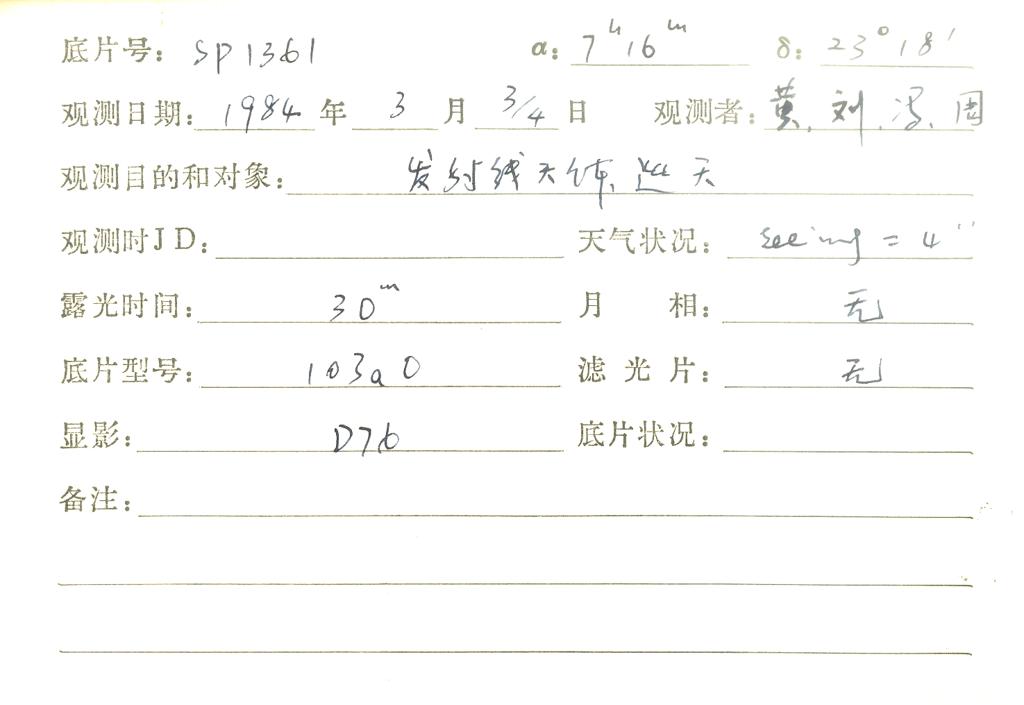 底片号: SP1361 α: 7ʰ16ᵐ δ: 23°18′
观测日期: 1984 年 3 月 3/4 日 观测者: 黄、刘、冯、周
观测目的和对象: 发射线天体巡天
观测时JD: 天气状况: seeing = 4″
露光时间: 30ᵐ 月 相: 无
底片型号: 103aO 滤光片: 无
显影: D76 底片状况:
备注: